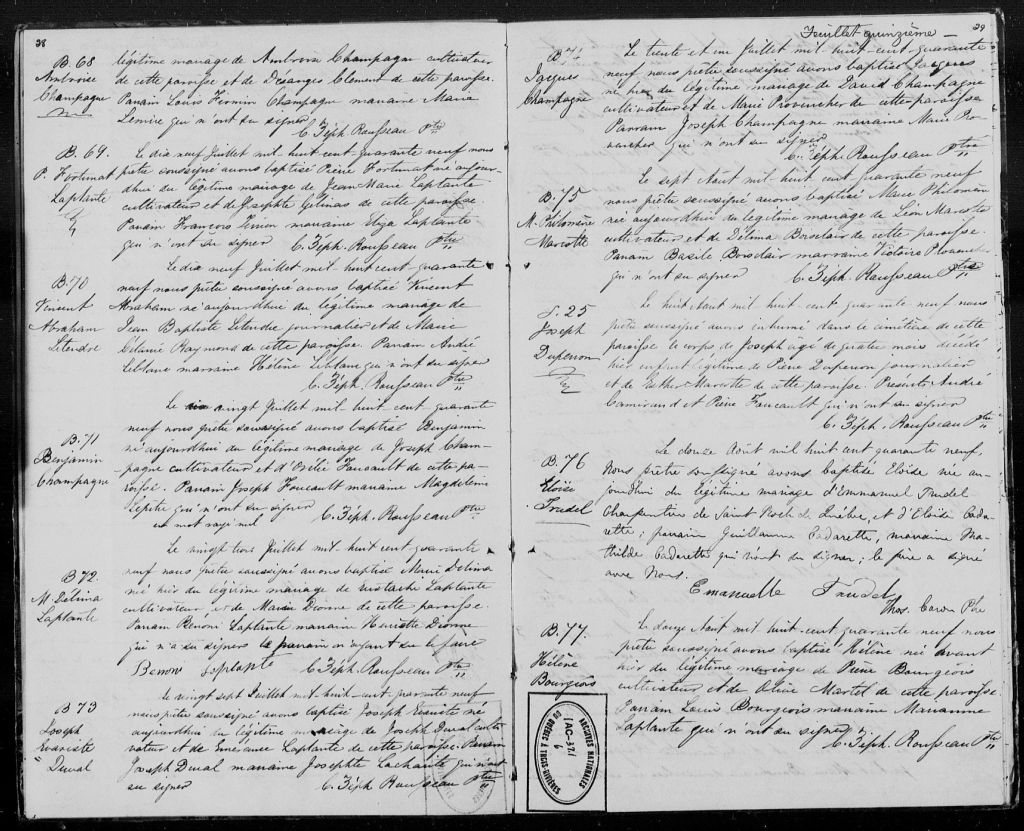 38
B. 68
Ambroise
Champagne
légitime mariage de Ambroise Champagne cultivateur
de cette paroisse et de Desanges Clement de cette paroisse.
Parrain Louis Firmin Champagne marraine Marie
Lemire qui n'ont su signer
C. Zéph. Rousseau Ptre
B. 69.
P. Fortunat
Laplante
Le dix neuf Juillet mil huit-cent-quarante neuf nous
prêtre soussigné avons baptisé Pierre Fortunat né aujour-
dhui du légitime mariage de Jean Marie Laplante
cultivateur et de Josephte Gelinas de cette paroisse.
Parrain François marraine Eliza Laplante
qui n'ont su signer C. Zéph. Rousseau Ptre
B. 70
Vincent
Abraham
Letendre
Le dix neuf Juillet mil huit cent-quarante
neuf nous prêtre soussigné avons baptisé Vincent
Abraham né aujourdhui du légitime mariage de
Jean Baptiste Letendre journalier et de Marie
Mélanie Raymond de cette paroisse. Parrain André
Leblanc marraine Hélène Leblanc qui n'ont su signer
C. Zéph. Rousseau Ptre
B. 71
Benjamin
Champagne
Le vingt Juillet mil huit-cent-quarante
neuf nous prêtre soussigné avons baptisé Benjamin
né aujourdhui du légitime mariage de Joseph Cham-
pagne cultivateur et d'Esther Foucault de cette pa-
roisse. Parrain Joseph Foucault marraine Magdeleine
qui n'ont su signer
un mot rayé nul C. Zéph. Rousseau Ptre
B 72.
M. Délina
Laplante
Le vingt trois Juillet mil huit-cent quarante
neuf nous prêtre soussigné avons baptisé Marie Delina
née hier du légitime mariage de Eustache Laplante
cultivateur et de Marie Dionne de cette paroisse.
Parrain Bénoni Laplante marraine Henriette Dionne
qui n'a su signer le parrain ayant su le faire
Benoni Laplante C. Zéph. Rousseau Ptre
B 73
Joseph
Evariste
Duval
Le vingt sept Juillet mil-huit-cent quarante neuf
nous prêtre soussigné avons baptisé Joseph Evariste né
aujourdhui du légitime mariage de Joseph Duval culti-
vateur et de Emerance Laplante de cette paroisse. Parrain
Joseph Duval marraine Josephte Lachaite qui n'ont
su signer C. Zéph. Rousseau Ptre
Feuillet quinzième —
39
B 74
Jacques
Champagne
Le trente et un Juillet mil huit-cent-quarante
neuf nous prêtre soussigné avons baptisé Jacques
né hier du légitime mariage de David Champagne
cultivateur et de Marie Provencher de cette paroisse
Parrain Joseph Champagne marraine Marie Pro-
vencher qui n'ont su signer
C. Zéph. Rousseau Ptre
B. 75
M. Philomène
Marcotte
Le sept Aout mil huit cent quarante neuf
nous prêtre soussigné avons baptisé Marie Philomène
née aujourdhui du légitime mariage de Léon Marcotte
cultivateur et de Délima Boisclair de cette paroisse.
Parrain Basile Boisclair marraine Victoire
qui n'ont su signer C. Zéph. Rousseau Ptre
S. 25
Joseph
Duperron
Le huit Aout mil huit cent quarante neuf nous
prêtre soussigné avons inhumé dans le cimétière de cette
paroisse le corps de Joseph âgé de quatre mois décédé
hier enfant légitime de Pierre Duperron journalier
et de Esther Marcotte de cette paroisse. Présents André
Camirand et Pierre Foucault qui n'ont su signer
C. Zéph. Rousseau Ptre
B. 76
Eloïse
Trudel
Le douze Août mil huit cent quarante neuf,
Nous prêtre soussigné avons baptisée Eloïse née au-
jourdhui du légitime mariage d'Emmanuel Trudel
Charpentier de Saint Roch de Québec, et d'Eloïse Cada-
rette; parrain Guillaume Cadarette, marraine Ma-
thilde Cadarette qui n'ont su signer; le père a signé
avec Nous.
Emanuelle Trudel
Thos. Caron Ptre
B. 77.
Hélène
Bourgeois
Le douze Aout mil huit-cent quarante neuf nous
prêtre soussigné avons baptisé Hélène née avant
hier du légitime mariage de Pierre Bourgeois
cultivateur et de Olive Martel de cette paroisse.
Parrain Louis Bourgeois marraine Marianne
Laplante qui n'ont su signer
C. Zéph. Rousseau Ptre
ARCHIVES NATIONALES
DU QUEBEC A TROIS-RIVIERES